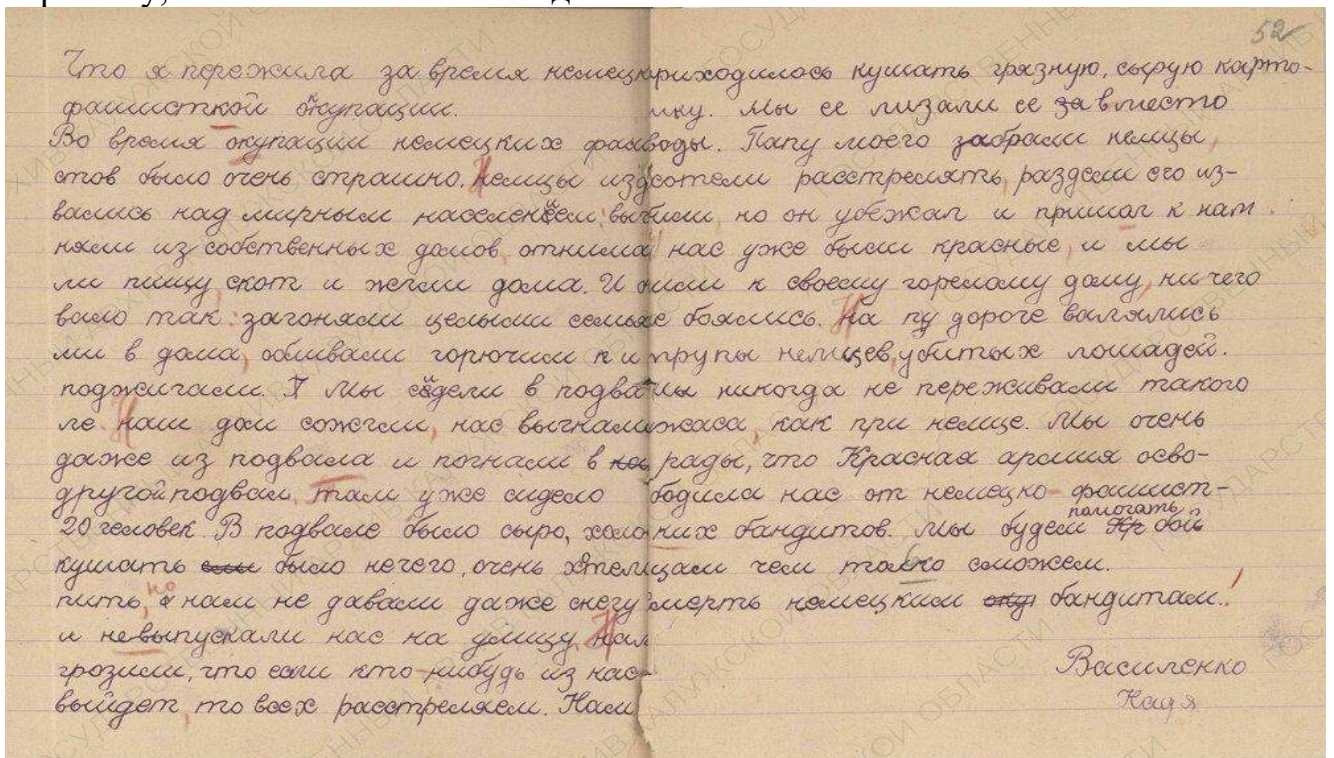 Что я пережила за время немецк
фашисткой окупации.
Во время окупации немецких фаш
стов было очень страшно. Немцы изде
вались над мирным населением: выго
няли из собственных домов, отнима
ли пищу, скот и жгли дома. И
вало так: загоняли целыми семья
ми в дома, обливали горючим к и
поджигали. Мы седели в подва
ле. Наш дом сожгли, нас выгнали
даже из подвала и погнали в
другой подвал, там уже сидело
20 человек. В подвале было сыро, холо
кушать было нечего, очень хотели
пить, но нам не давали даже снегу
и невыпускали нас на улицу. Нам
грозили, что если кто-нибудь из нас
выйдет, то всех расстреляем. Нам
52
приходилось кушать грязную, сырую карто-
шку. Мы ее лизали ее за вместо
воды. Папу моего забрали немцы,
хотели расстрелять, раздели его из-
били, но он убежал и пришол к нам.
У нас уже были красные, и мы
шли к своему горелому дому, ничего
не боялись. На пу дороге валялись
трупы немцев, убитых лошадей.
мы никогда не переживали такого
жаса, как при немце. Мы очень
рады, что Красная армия осво-
бодила нас от немецко-фашист-
ких бандитов. Мы будем помогать бой
цам чем толко сможем.
смерть немецким бандитам!
Василенко
Надя